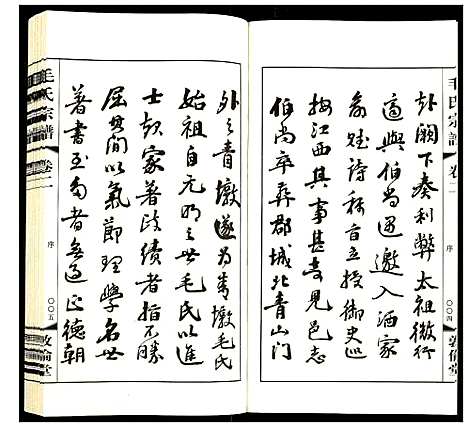 毛氏宗譜
卷二
序
〇〇四
敦倫堂
赴闕下奏利弊太祖微行
適與伯尚遇邀入酒家
命賦詩稱旨立授御史
按江西其事甚奇見邑志
伯尚卒葬郡城北青山門
外之青墩遂為青墩毛氏
始祖自元明之世毛氏以進
士起家著政績者指不勝
屈其間以氣節理學名世
著書至多者無過正德朝
毛氏宗譜
卷二
序
〇〇五
敦倫堂